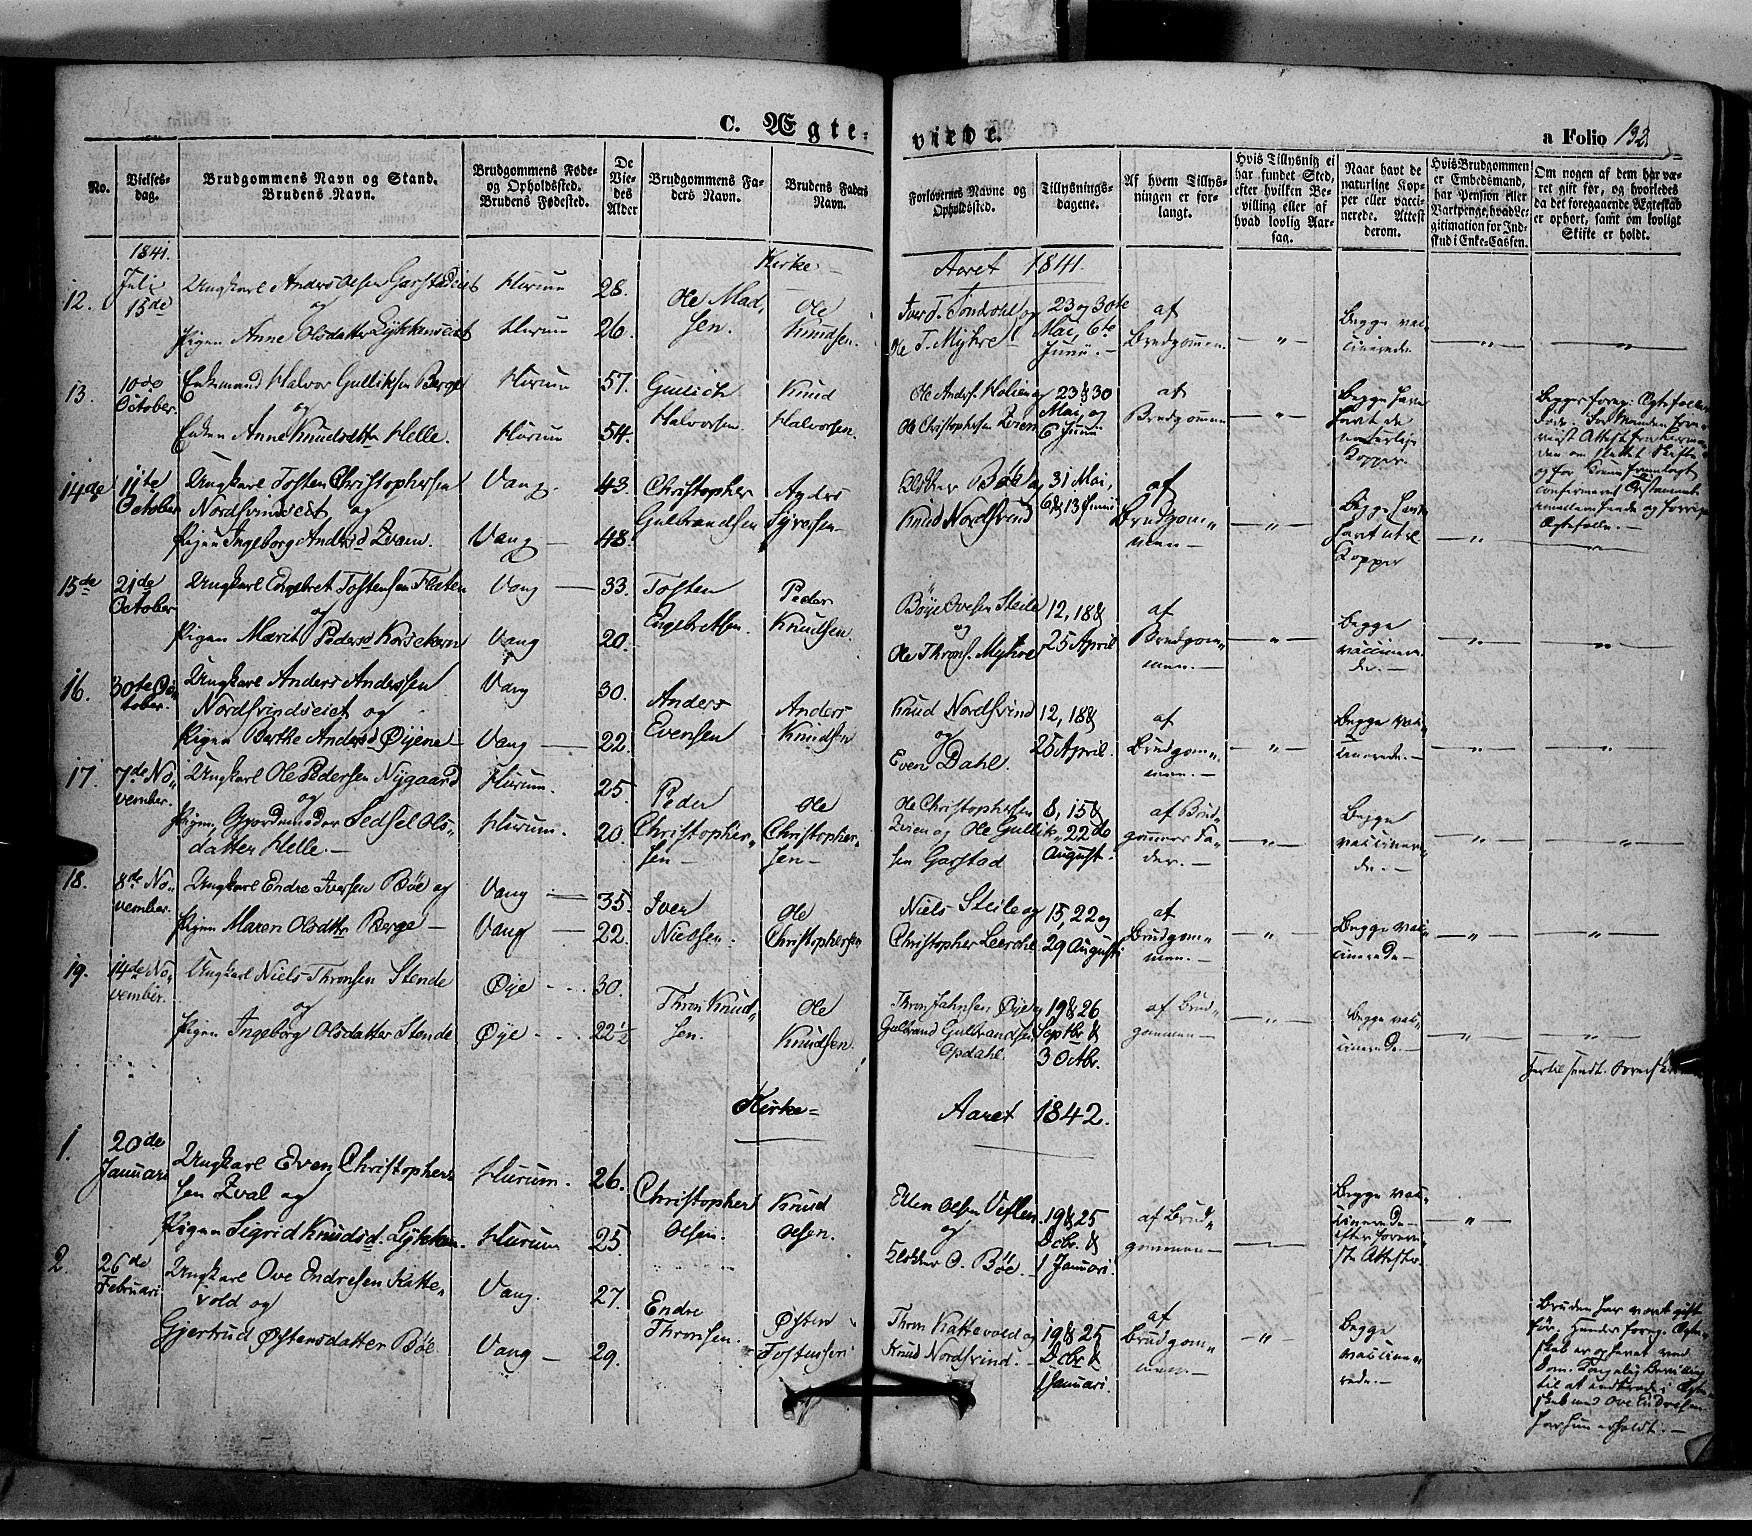 C. Ægte-
vivde.
a Folio 192.
No.
Vielses-
dag.
Brudgommens Navn og Stand.
Brudens Navn.
Brudgommens Føde-
og Opholdssted.
Brudens Fødested.
De
Vie-
des
Alder
Brudgommens Fa-
ders Navn.
Brudens Faders
Navn.
Forlovernes Navne og
Opholdssted.
Tillysnings-
dagene.
Af hvem Tillys-
ningen er for-
langt.
Hvis Tillysnig ei
har fundet Sted,
efter hvilken Be-
villing eller af
hvad lovlig Aar-
sag.
Naar havt de
naturlige Kop-
per eller vacci-
nerede. Attest
derom.
Hvis Brudgommen
er Embedsmand,
har Pension eller
Vartpenge, hvad Le-
gitimation for Ind-
skud i Enke-Cassen.
Om nogen af dem har væ-
ret gift før, og hvorledes
da det foregaaende Ægteskab
er ophørt, samt om lovligt
Skifte er holdt.
1841.
Kirke-
Aaret 1841.
12.
Juli
15de
Ungkarl Anders Olsen Garstadeiet
og
Pigen Anne Olsdatter Lykkenseiet
Hurum
Hurum
28.
26.
Ole Mad-
sen.
Ole
Knudsen.
Iver T. Tondvold og
Ole T. Myhre
23 og 30te
Mai, 6te
Junii.
af
Brudgomen.
Begge vac-
cinerede
13.
10de
October.
Enkemand Halvor Gulliksen Berge
og
Enken Anne Knudsdttr Helle.
Hurum
Hurum
57.
54.
Gullich
Halvorsen.
Knud
Halvorsen.
Ole Anders. Holien og
Ole Christophersen Zeien
23 & 30
Mai, og
6 Junii
af
Brudgommen
Begge have
havt de
naturlige
Kopper.
14de
11te
October
Ungkarl Tosten Christophersen
Nordsvindseiet og
Pigen Ingeborg Andersd Kvam.
Vang.
Vang
43.
48.
Christopher
Gulbrandsen
Anders
Syversen
Eldker Bøe og
Knud Nordsvind
31 Mai,
6 & 13 Junii
af
Brudgom-
men
Begge have
havt
Kopper
15de
21de
October
Ungkarl Engebret Tostensen Flaten
og
Pigen Marit Pedersd
Vang
Vang
33.
20.
Tosten
Engebretsen.
Peder
Knudsen.
Bøye Ovesen Steile
og
Ole Throns. Myhre
12, 18 &
25 April
af
Brudgom-
men.
Begge
vaccinere-
de.
16.
30te Oc-
tober.
Ungkarl Anders Anderssen
Nordsvindseiet og
Pigen Berthe Andersd Øiene
Vang
Vang
30.
22.
Anders
Evensen
Anders
Knudsen
Knud Nordsvind
og
Even Dahl.
12, 18 &
25 April.
af
Brudgom-
men.
Begge vac-
cinerede.
17.
7de No-
vember.
Ungkarl Ole Pedersen Nygaard
og
Pigen, Gjordemoder Sedsel Ols-
datter Helle.
Hurum.
Hurum.
25.
20.
Peder
Christopher-
sen
Ole
Christopher-
sen
Ole Christophersen
Zeien og Ole Gullik-
sen Garstad
8, 15 &
22de
August.
af Brud-
gommens Fa-
der.
Begge
vaccinere-
de.
18.
8de No-
vember.
Ungkarl Endre Iversen Bøe og
Pigen Maren Olsdttr Berge
Vang
Vang
35.
22.
Iver
Nielsen.
Ole
Christophersen
Niels Steile og
Christopher Leerhol
15, 22 og
29 August
af
Brudgom-
men.
Begge vac-
cinerede
19.
14de No-
vember.
Ungkarl Niels Thronsen Stende
og
Pigen Ingeborg Olsdatter Stende
Øye
Øye
30.
22½
Thron Knud-
sen.
Ole
Knudsen.
Thron Jahnsen Øye og
Gulbrand Gulbrandsen
Opdahl.
19 & 26
Septbr &
3 Octbr.
af Brud-
gommen
Begge vac-
cinerede.
Kirke-
Aaret 1842.
1.
20de
Januari
Ungkarl Even Christopher-
sen Kval og
Pigen Sigrid Knudsd. Lykken.
Hurum.
Hurum
26.
25.
Christopher
Olsen.
Knud
Olsen.
Ellen Olsen Veflen
og
Eldker O. Bøe.
19 & 25
Dcbr. &
1 Januari.
af Brud-
gommen
Begge vac-
cinerede
2.
26de
Februari
Ungkarl Ove Endresen Katte-
vold og
Gjertrud Østensdatter Bøe
Vang.
Vang
27.
29.
Endre
Thronsen.
Østen
Tostensen
Thron Kattevold og
Knud Nordsvind.
19 & 25
Dcbr &
1 Januari.
af
Brudgom-
men.
Begge
vaccine-
rede.
Bruden har været gift
før. Hendes foreg. Ægte-
skab er ophævet ved
Dom. Kongelig Bevilling
til at indtræde i Ægte-
skab med Ove Endresen
har hun erholdt.